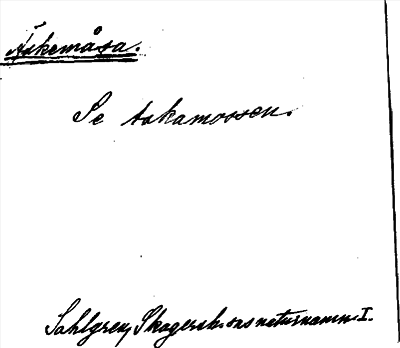 Åskemåsa.
Se Askamossen.
Sahlgren, Skagersh.sns naturnamn. I.